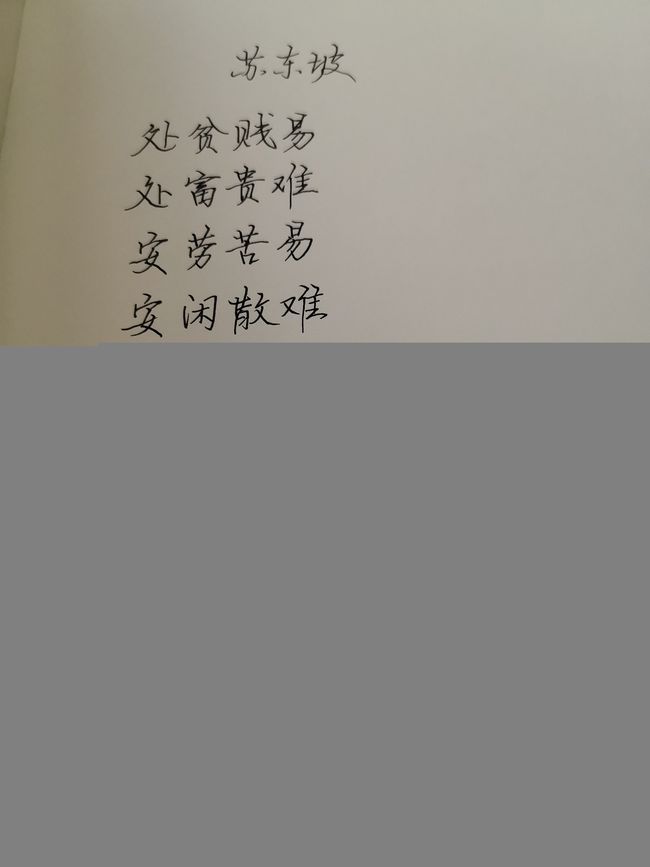 苏东坡
处贫贱易
处富贵难
安劳苦易
安闲散难